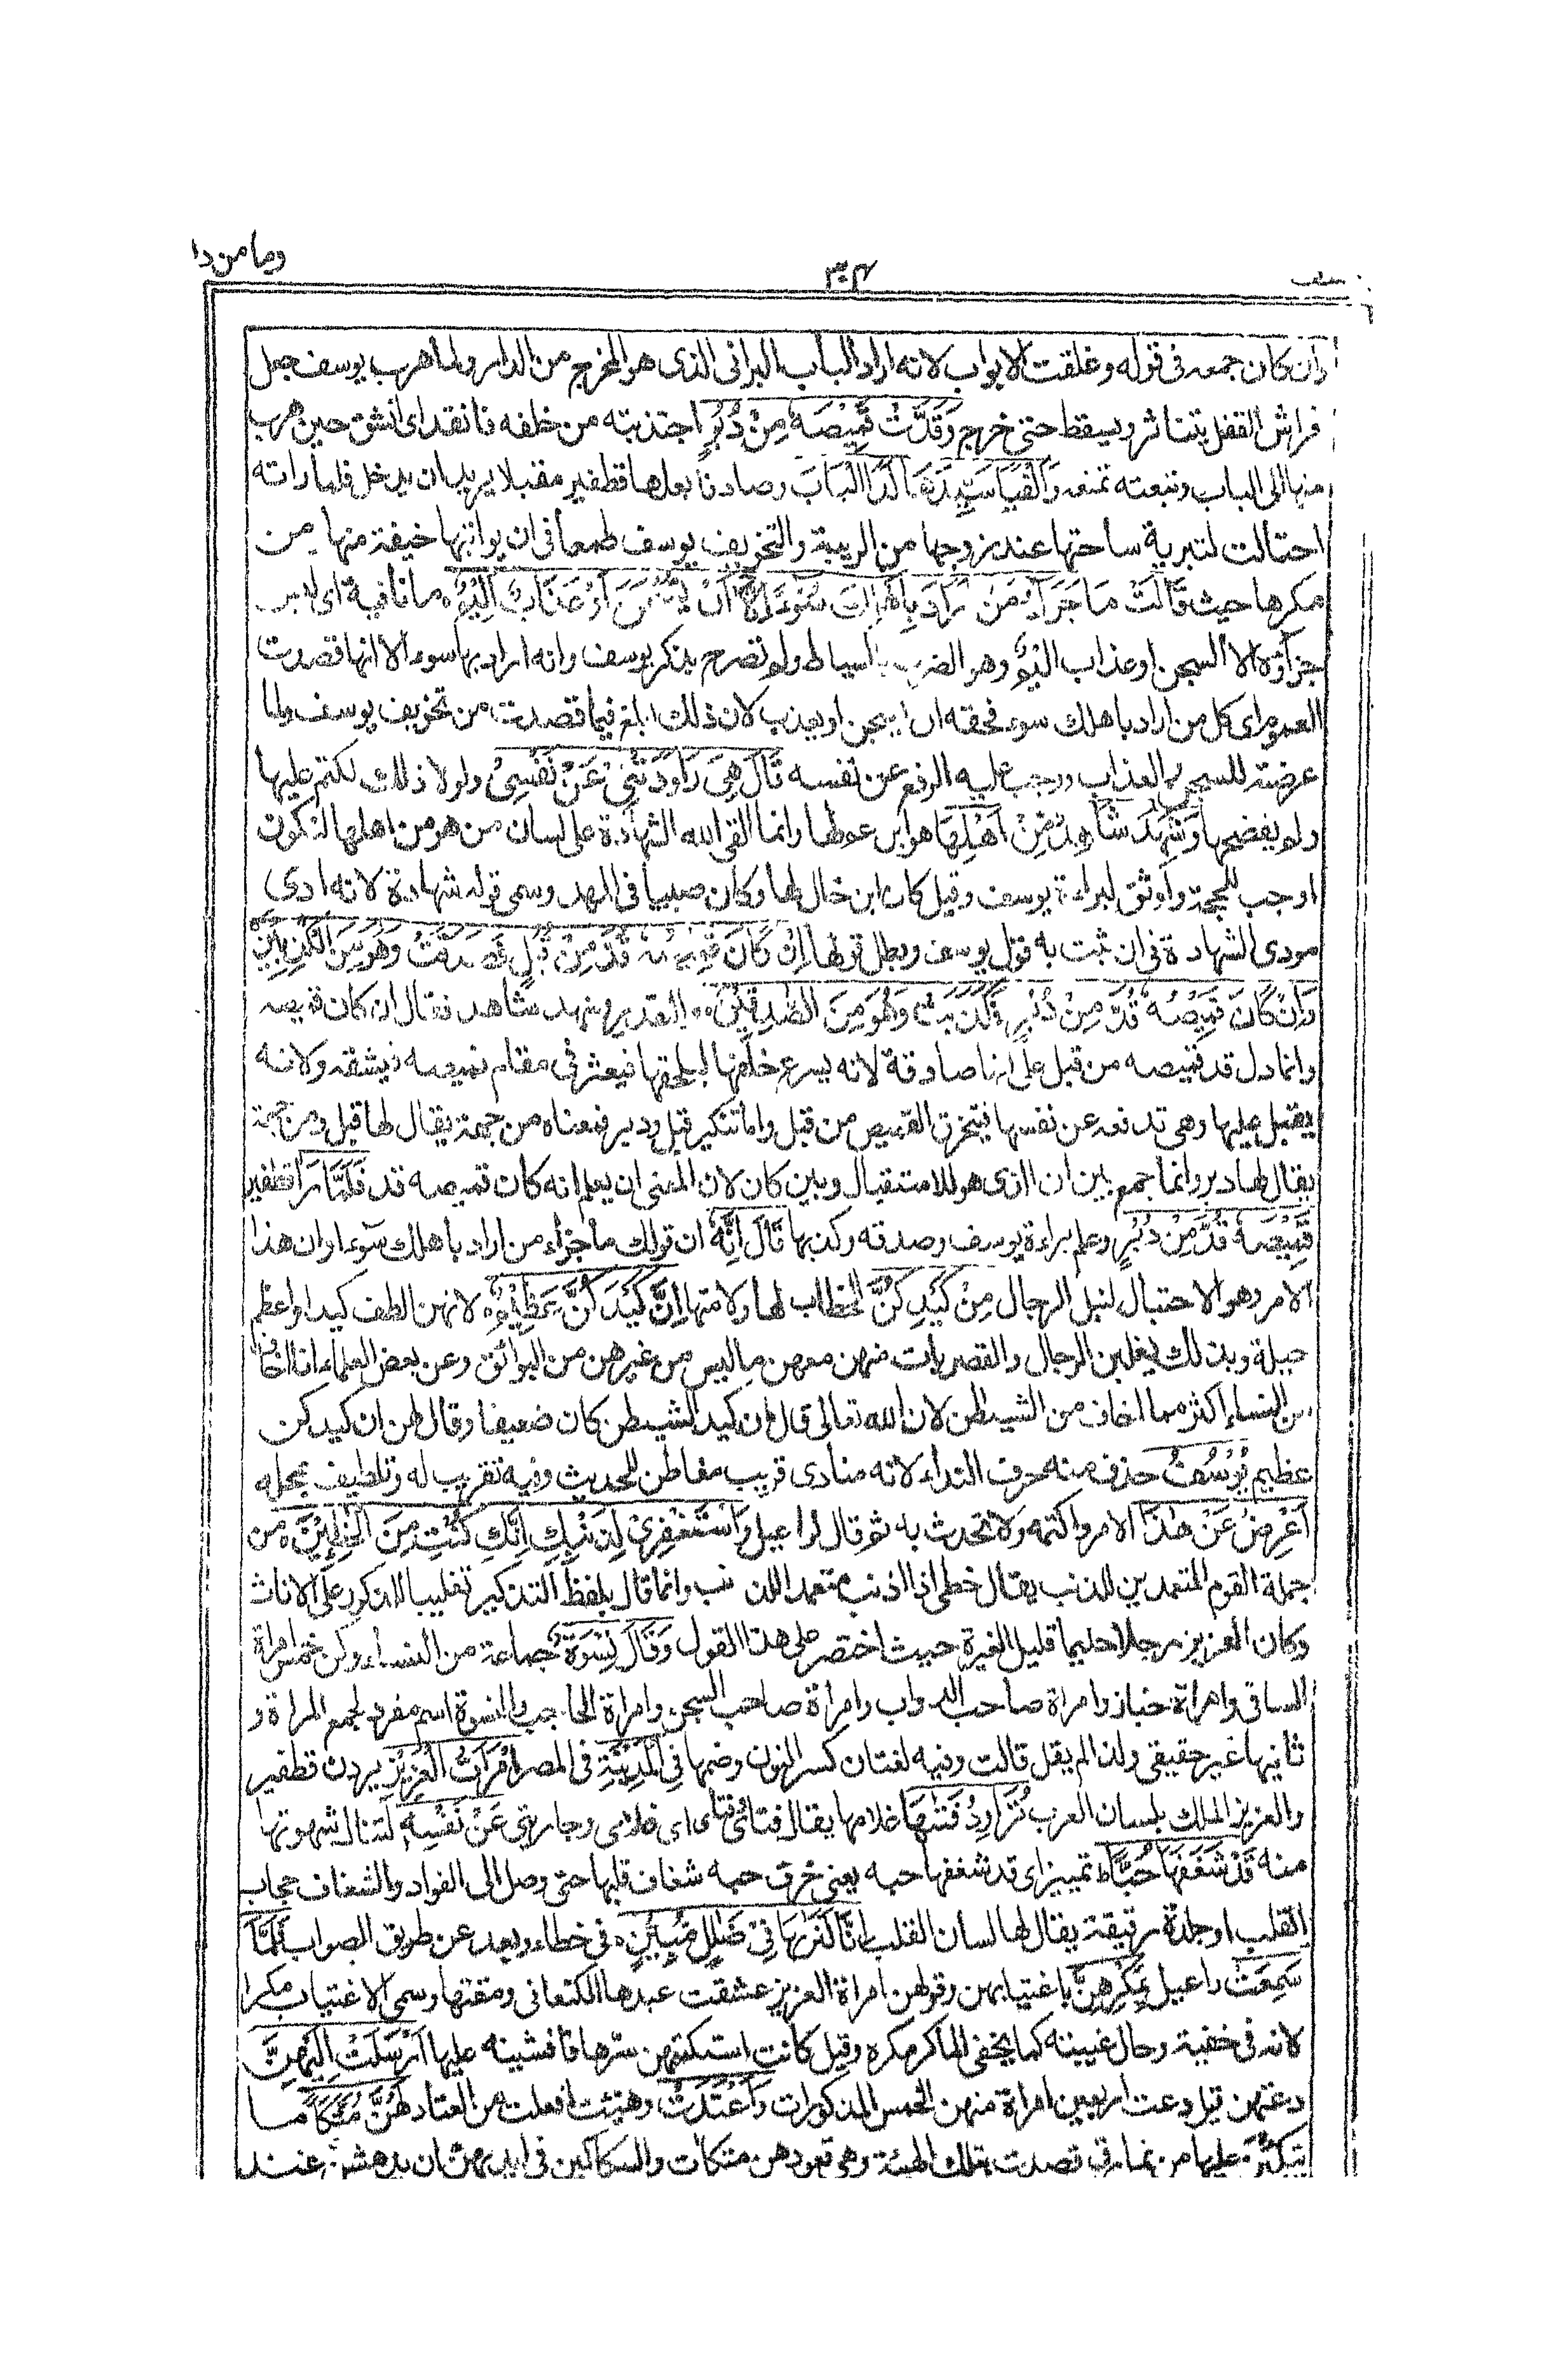 وما من دا
٣٠٤
وان كان جمعه فى قوله وغلقت الابواب لانه اراد الباب البرانى الذى هو المخرج من الدار ولما هرب يوسف جعل
فراش القفل يتناثر ويسقط حتى خرج وَقَدَّتْ قَمِيْصَهٗ مِنْ دُبُرٍ اجتذبته من خلفه فانقد اى انشق حين هرب
منها الى الباب وتبعته تمنعه وَاَلْفَيَا سَيِّدَهَا لَدَا الْبَابَ وصادفا بعلها قطفير مقبلا يريد ان يدخل فلما راته
احتالت لتبرية ساحتها عند زوجها من الريبة والتخويف يوسف طمعا فى ان يواتيها خيفة منها من
مكرها حيث قَالَتْ مَا جَزَآءُ مَنْ اَرَادَ بِاَهْلِكَ سُوْءًا اِلَّآ اَنْ يُّسْجَنَ اَوْ عَذَابٌ اَلِيْمٌ ما نافية اى ليس
جزآؤه الا السجن او عذاب اليم وهو الضرب بالسياط ولم تصرح بذكر يوسف وانه اراد بها سوء الا انها قصدت
العموم اى كل من اراد باهلك سوء فحقه ان يسجن او يعذب لان ذلك ابلغ فيما قصدت من تخويف يوسف ولما
عرضته للسجن والعذاب ووجب عليه الدفع عن نفسه قَالَ هِيَ رَاوَدَتْنِيْ عَنْ نَّفْسِيْ ولولا ذلك لكتم عليها
ولم يفضحها وَشَهِدَ شَاهِدٌ مِّنْ اَهْلِهَا هو ابن عم لها وانما القى الله الشهادة على لسان من هو من اهلها لتكون
اوجب للحجة واوثق لبراءة يوسف وقيل كان ابن خال لها وكان صبيا فى المهد وسمى قوله شهادة لانه ادى
مودى الشهادة فى ان ثبت به قول يوسف وبطل قولها اِنْ كَانَ قَمِيْصُهٗ قُدَّ مِنْ قُبُلٍ فَصَدَقَتْ وَهُوَ مِنَ الْكٰذِبِيْنَ
وَاِنْ كَانَ قَمِيْصُهٗ قُدَّ مِنْ دُبُرٍ فَكَذَبَتْ وَهُوَ مِنَ الصّٰدِقِيْنَ التقدير وشهد شاهد فقال ان كان قميصه
وانما دل قد قميصه من قبل على انها صادقة لانه يسرع خلفها ليلحقها فيعثر فى مقام قميصه فيشقه ولانه
يقبل عليها وهى تدفعه عن نفسها فيتخرق القميص من قبل واما تنكير قبل ودبر فمعناه من جهة يقال لها قبل ومن جهة
يقال لها دبر وانما جمع بين ان الذى هو للاستقبال وبين كان لان المعنى ان يعلم انه كان قميصه قد فَلَمَّا رَاٰ قطفير
قَمِيْصَهٗ قُدَّ مِنْ دُبُرٍ وعلم براءة يوسف وصدقه وكذبها قَالَ اِنَّهٗ ان قولك ما جزاء من اراد باهلك سوءا وان هذا
الامر وهو الاحتيال لنيل الرجال مِنْ كَيْدِكُنَّ الخطاب لها ولامتها اِنَّ كَيْدَكُنَّ عَظِيْمٌ لانهن الطف كيدا واعظم
حيلة وبذلك يغلبن الرجال والقصريات منهن معهن ما ليس مع غيرهن من البوائق وعن بعض العلماء انا اخاف
من النساء اكثر مما اخاف من الشيطن لان الله تعالى قال ان كيد الشيطن كان ضعيفا وقال لهن ان كيدكن
عظيم يُوْسُفُ حذف منه حرف النداء لانه منادى قريب مفاطن للحديث وفيه تقريب له وتلطيف بمحله
اَعْرِضْ عَنْ هٰذَا الامر واكتمه ولا تحدث به ثم قال لراعيل وَاسْتَغْفِرِيْ لِذَنْبِكِ اِنَّكِ كُنْتِ مِنَ الْخٰطِئِيْنَ من
جملة القوم المتعمدين للذنب يقال خطئ اذا اذنب متعمدا للذنب وانما قال بلفظ التذكير تغليبا للذكور على الاناث
وكان العزيز رجلا حليما قليل الغيرة حيث اختصر على هذا القول وَقَالَ نِسْوَةٌ جماعة من النساء وكن خمس امراة
الساقى وامراة خباز وامراة صاحب الدواب وامراة صاحب السجن وامراة الحاجب والنسوة اسم مفرد لجمع المراة و
ثانيها غير حقيقى ولذا لم يقل قالت وفيه لغتان كسر النون وضمها فِي الْمَدِيْنَةِ فى المصر امْرَاَتُ الْعَزِيْزِ يردن قطفير
والعزيز الملك بلسان العرب تُرَاوِدُ فَتٰىهَا غلامها يقال فتاى وفتاتى اى غلامى وجاريتى عَنْ نَفْسِهٖ لتنال شهوتها
منه قَدْ شَغَفَهَا حُبًّا تمييز اى قد شغفها حبه يعنى خرق حبه شغاف قلبها حتى وصل الى الفواد والشغاف حجاب
القلب او جلدة رقيقة يقال لها لسان القلب اِنَّا لَنَرٰىهَا فِيْ ضَلٰلٍ مُّبِيْنٍ فى خطاء وبعد عن طريق الصواب فَلَمَّا
سَمِعَتْ راعيل بِمَكْرِهِنَّ باغتيابهن وقولهن امراة العزيز عشقت عبدها الكنعانى ومقتها وسمى الاغتياب مكرا
لانه فى خفية وحال غيبته كما يخفى الماكر مكره وقيل كانت استكتمتهن سرها فافشينه عليها اَرْسَلَتْ اِلَيْهِنَّ
دعتهن قيل دعت اربعين امراة منهن الخمس المذكورات وَاَعْتَدَتْ وهيئت افعلت من العتاد لَهُنَّ مُتَّكَاً ما
يتكئن عليها من نمارق قصدت بتلك الهيئة وهى قعودهن متكات والسكاكين فى ايديهن ان يدهشن عند